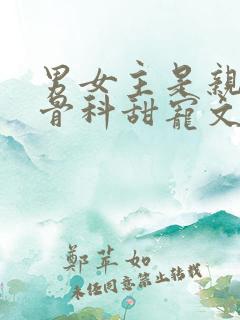 男女主是親
骨科甜寵文
鄭苹如
未经同意禁止转载